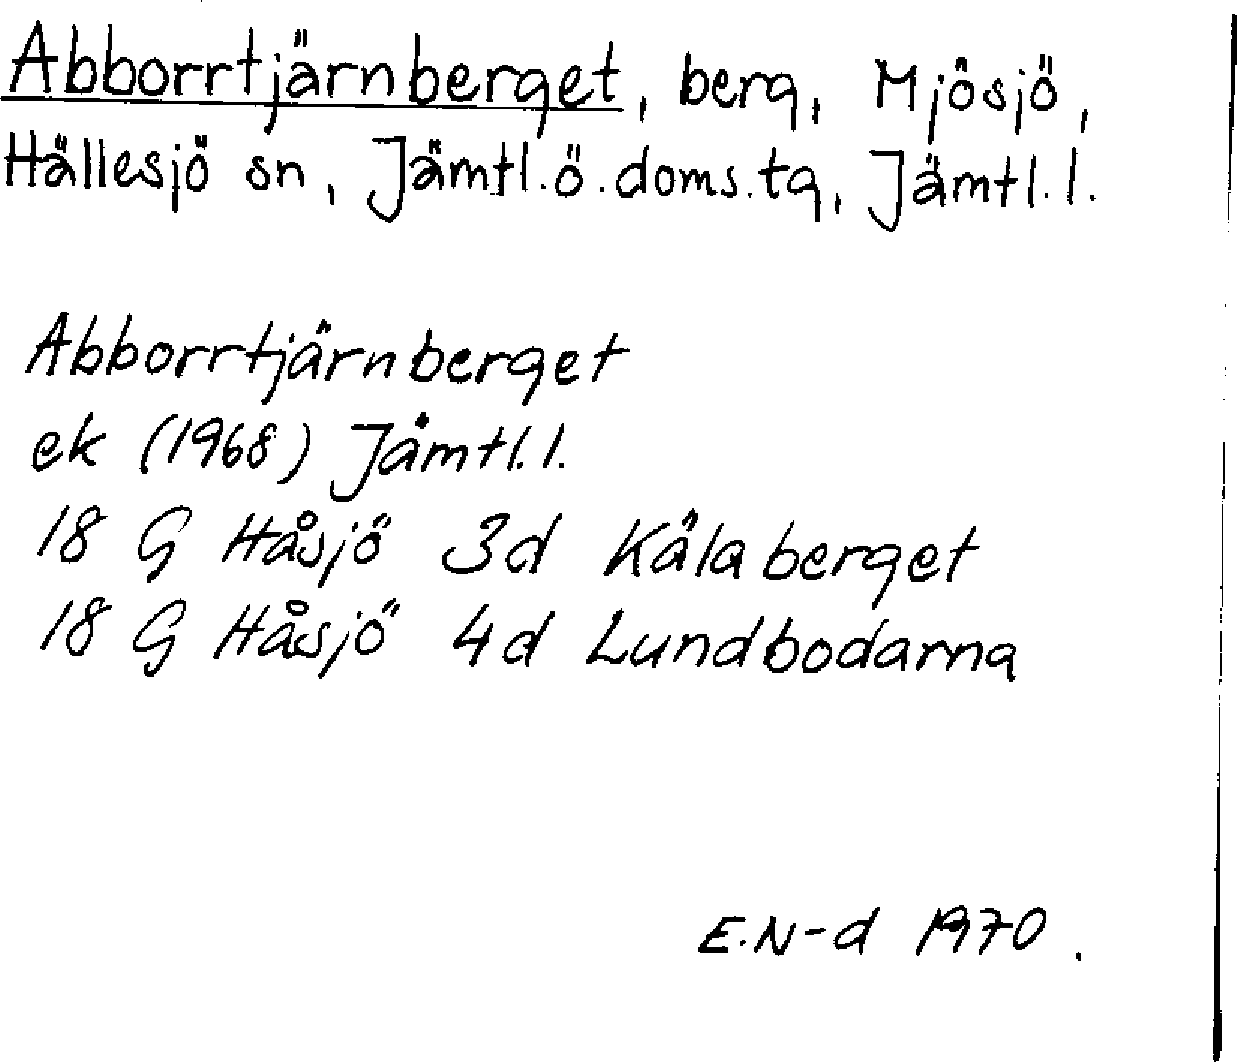 Abborrtjärnberget, berg, Mjösjö,
Hällesjö sn, Jämtl.ö.doms.tg, Jämtl.l.
Abborrtjärnberget
ek (1968) Jämtl.l.
18 G Håsjö 3d Kälaberget
18 G Håsjö 4d Lundbodarna
E.N-d 1970.